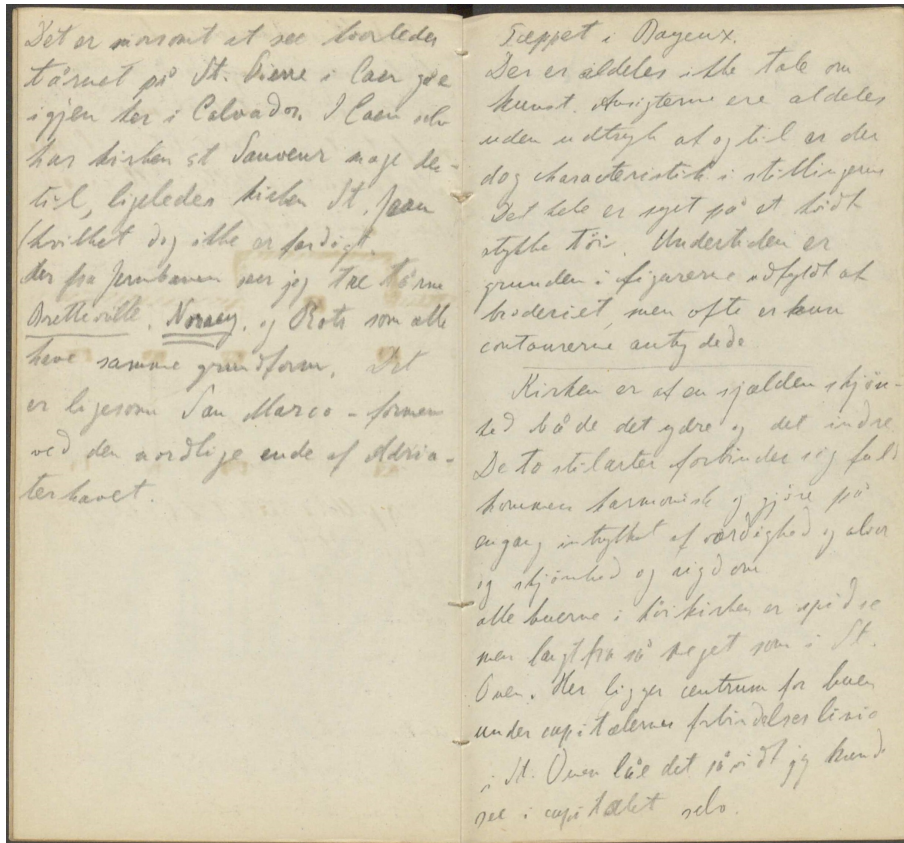 Det er morsomt at see hvorledes
tårnet på St. Pierre i Caen går
igjen her i Calvados. I Caen selv
har kirken St Sauveur noge der-
til, ligeledes kirken St. Jean
(hvilket dog ikke er færdigt.
der fra Jernbanen ser jeg tre tårne
Bretteville, Norrey, og Rots som alle
have samme grundform. Det
er ligesom San Marco-formen
ved den nordlige ende af Adria-
terhavet.
Tæppet i Bayeux.
Der er aldeles ikke tale om
kunst. Ansigterne ere aldeles
uden udtryk af og til er der
dog characteristik i stillingerne
Det hele er syet på et hvidt
stykke töi. Undertiden er
grunden i figurerne udfyldt af
broderiet, men ofte er kun
contourerne antydede
Kirken er af en sjælden skjön-
hed både det ydre og det indre
De to stilarter forbinder sig fuld
kommen harmonisk og gjöre på
engang intrykket af værdighed og alvor
og skjönhed og rigdom
alle buerne i höikirken er spidse
men langt fra så meget som i St.
Ouen. Her ligger centrum for buen
under capitælernes forbindelses linie
i St. Ouen låe det så vidt jeg kunde
see i capitælet selv.